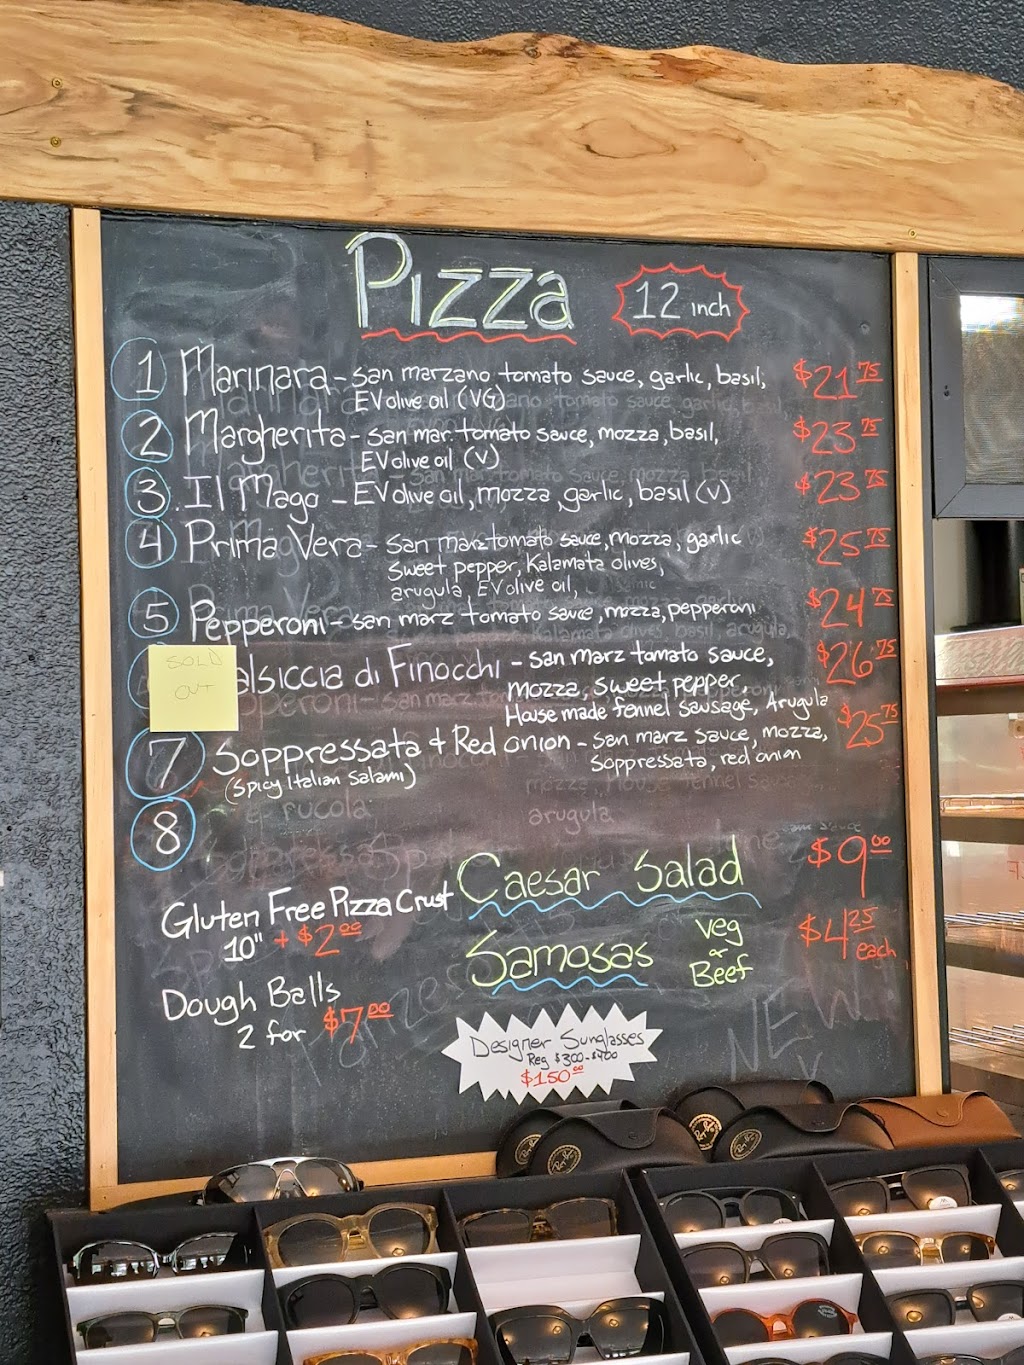 Pizza
12 inch
1 Marinara - san marzano tomato sauce, garlic, basil, $21.75
EV olive oil (VG)
2 Margherita - san mar. tomato sauce, mozza, basil, $23.75
EV olive oil (V)
3. Il Mago - EV olive oil, mozza, garlic, basil (V) $23.75
4 Prima Vera - san marz tomato sauce, mozza, garlic $25.75
sweet pepper, Kalamata olives,
arugula, EV olive oil,
5 Pepperoni - san marz tomato sauce, mozza, pepperoni $24.75
SOLD
OUT
alsiccia di Finocchi - san marz tomato sauce, $26.75
mozza, sweet pepper,
House made fennel sausage, Arugula
7 Soppressata + Red onion - san marz sauce, mozza, $25.75
(Spicy Italian Salami) soppressata, red onion
8
Caesar Salad $9.00
Gluten Free Pizza Crust
10" + $2.00
Samosas veg or Beef $4.25 each
Dough Balls
2 for $7.00
Designer Sunglasses
Reg $300-$400
$150.00
NEW
Ray-Ban